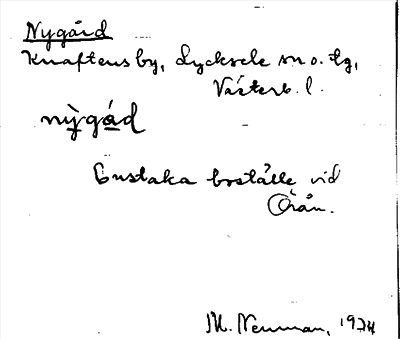 Nygård
Knaftens by, Lycksele sn o. tg,
Västerb. l.
nỳgá̱d
Enstaka boställe vid
Örån.
M. Neuman, 1934